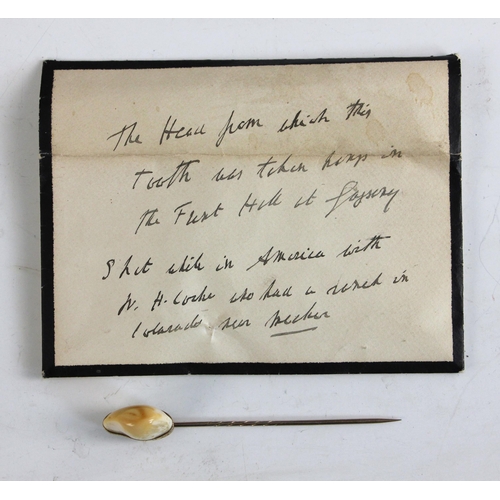 The Head from which this
Tooth was taken hangs in
the Front Hall at
Shot while in America with
W. H. Cocke who had a ranch in
Colorado near Meeker